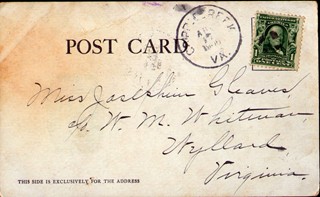 POST CARD
VA.
Miss Josephine Gleaves
c/o W. M. Whitman
Wyllard
Virginia.
THIS SIDE IS EXCLUSIVELY FOR THE ADDRESS